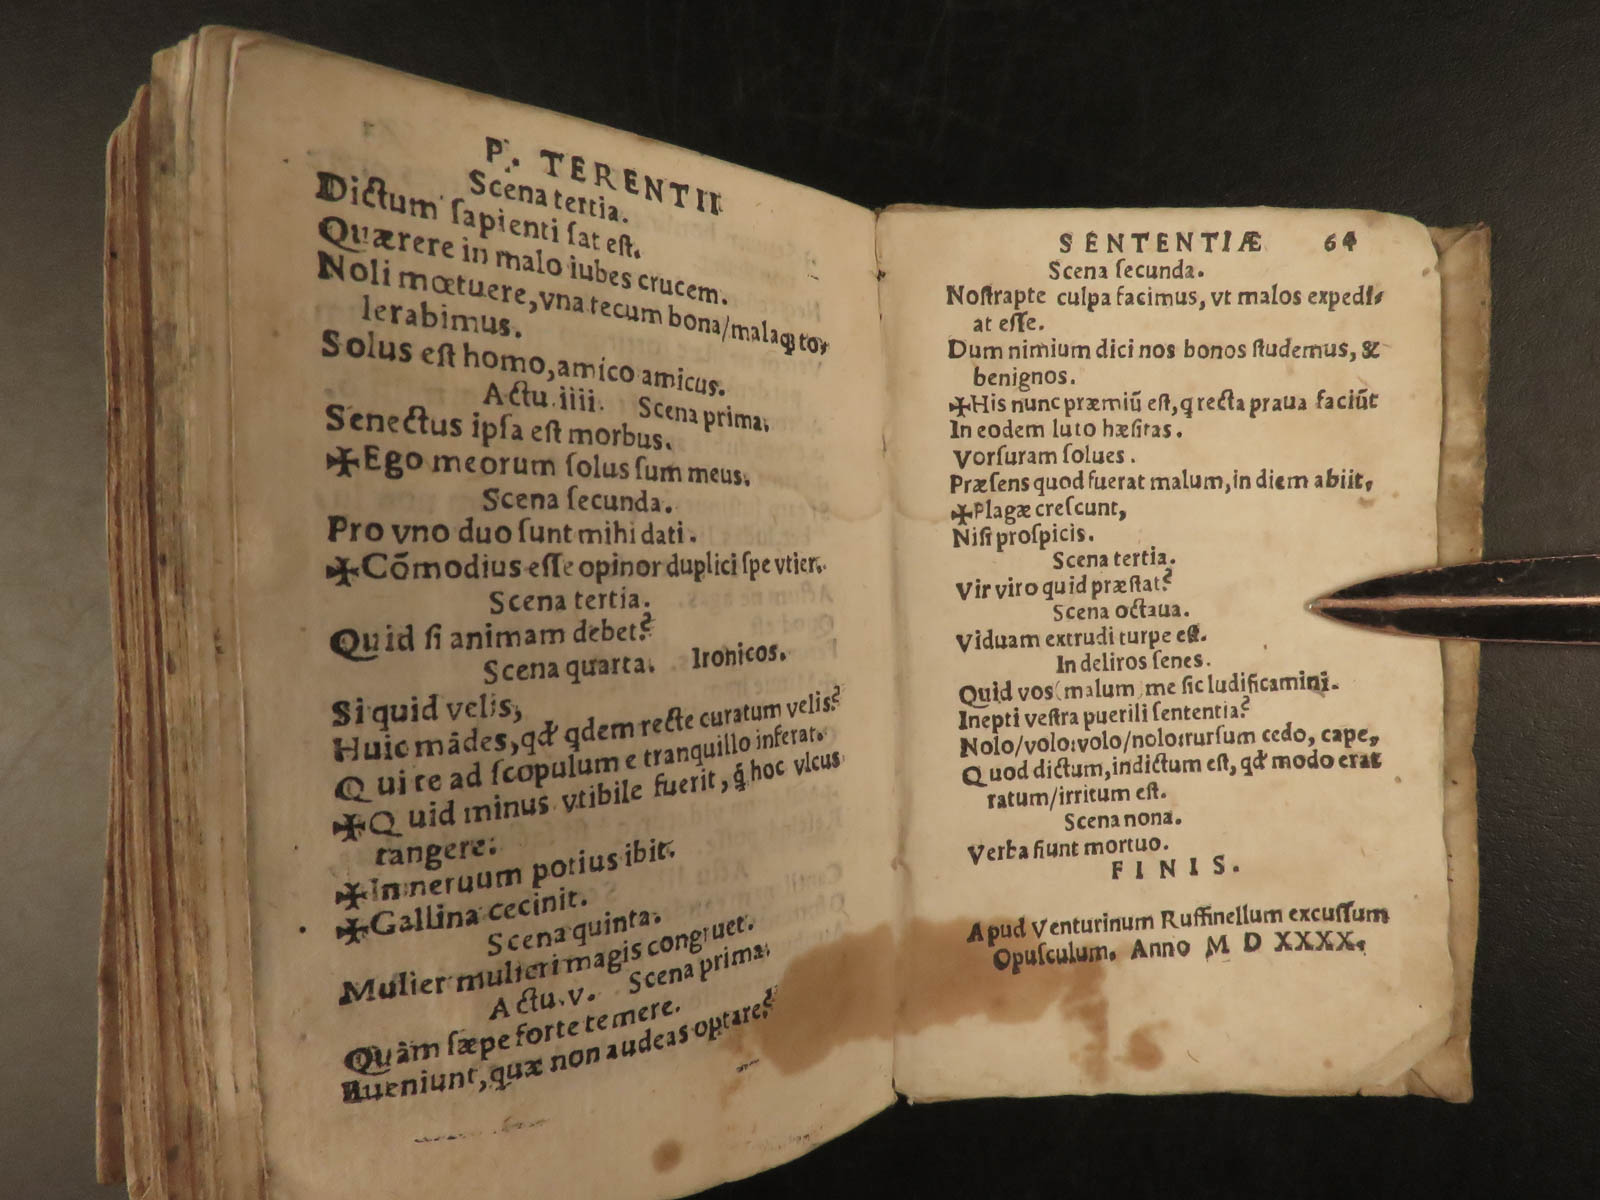 P. TERENTII
Scena tertia.
Dictum ſapienti ſat eſt.
Quærere in malo iubes crucem.
Noli mœtuere, vna tecum bona/malaqꝫ to,
lerabimus.
Solus eſt homo, amico amicus.
Actu.iiii. Scena prima.
Senectus ipſa eſt morbus.
✠Ego meorum ſolus ſum meus.
Scena ſecunda.
Pro vno duo ſunt mihi dati.
✠Cōmodius eſſe opinor duplici ſpe vtier.
Scena tertia.
Quid ſi animam debet?
Scena quarta. Ironicos.
Si quid velis,
Huic mādes, qđ qdem recte curatum velis?
Qui te ad ſcopulum e tranquillo inferat.
✠Quid minus vtibile fuerit, q̄ hoc vlcus
tangere:
✠In neruum potius ibit.
✠Gallina cecinit.
Scena quinta.
Mulier mulieri magis congruet.
Actu.v. Scena prima.
Quàm ſæpe forte temere.
Eueniunt, quæ non audeas optare?
SENTENTIÆ 64
Scena ſecunda.
Noſtrapte culpa facimus, vt malos expedi,
at eſſe.
Dum nimium dici nos bonos ſtudemus, &
benignos.
✠His nunc præmiū eſt, q recta praua faciūt
In eodem luto hæſitas.
Vorſuram ſolues.
Præſens quod fuerat malum, in diem abiit,
✠Plagæ creſcunt,
Niſi proſpicis.
Scena tertia.
Vir viro quid præſtat?
Scena octaua.
Viduam extrudi turpe eſt.
In deliros ſenes.
Quid vos(malum)me ſic ludificamini.
Inepti veſtra puerili ſententia?
Nolo/volo:volo/nolo:rurſum cedo, cape,
Quod dictum, indictum eſt, qđ modo erat
ratum/irritum eſt.
Scena nona.
Verba fiunt mortuo.
FINIS.
Apud Venturinum Ruffinellum excuſſum
Opuſculum. Anno M D XXXX.